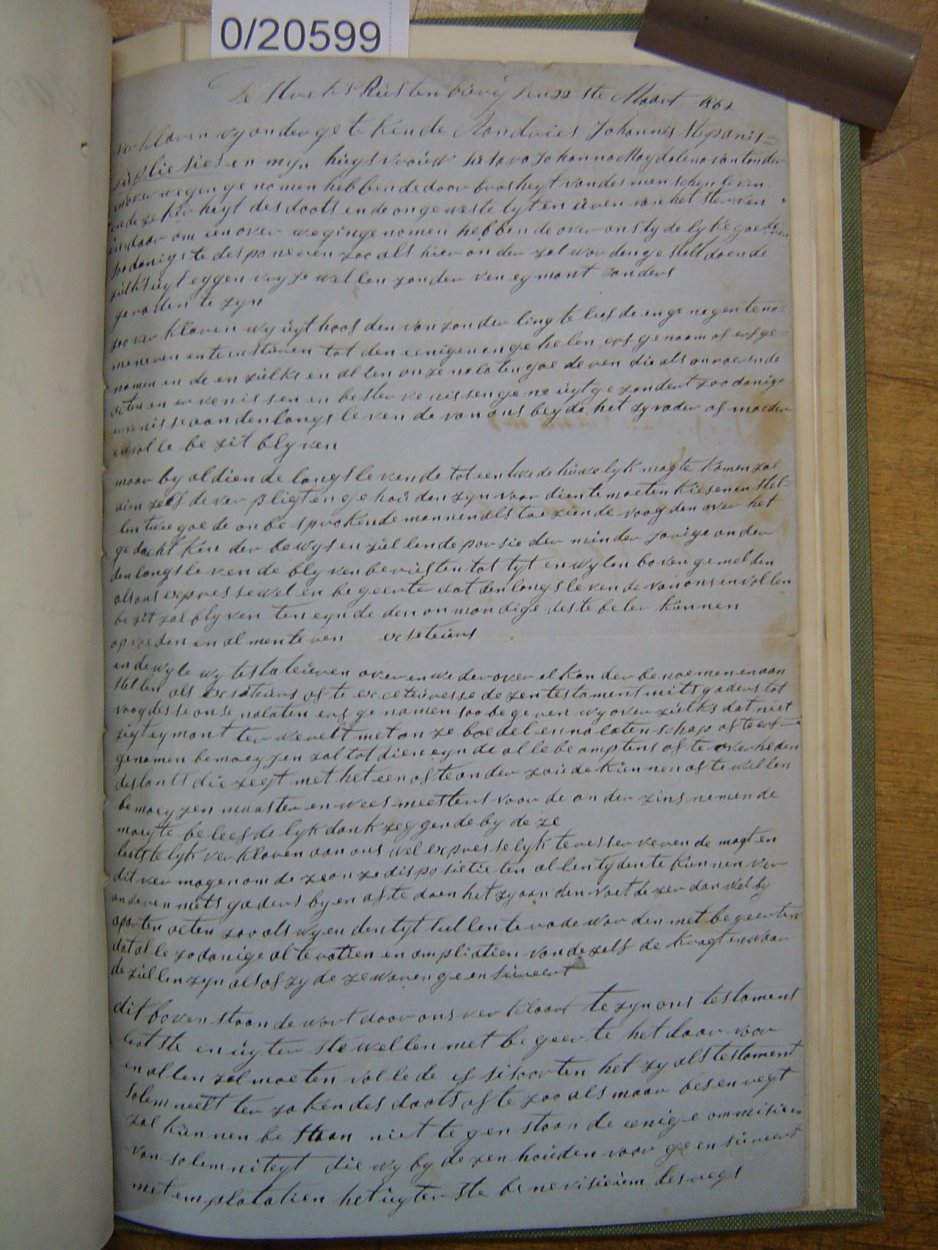 0/20599
Rustenburg den 22 ste Maart 1862
verklaren wy onder ge te kende Aandries Johannes Stepanis =
en myn huys vrouw Johanna Magdalena van tonder
in over wegen ge nomen hebben de door brosheyt van des men schen leven
en de ze ker heyt des doots en de onge weste tyt en uven van het sterven
en daar om in over weginge nomen hebben de over ons tydelyke goederen
zoo danigs te desponeren zoo als hier on der zal wor den ge stelt doende
zulks uyt eggen vrye wel len zonder van eymant anders
geraden te zyn
zoo ver klaren wy uyt hoof den van zonder ling te lief de en ge negen te no-
meneren en te in stueren tot den eenigen en ge helen erf genaam of erf ge-
namen en de en zulks en al len onze nalaten goe de ren die als onroerende
acten en er ve nis sen en bester ve nissen ge ne uytge zondert zoo danige
ervenisse aan den langs le ven de van ons bey de het zy vader of moeder
en vol le be zit bly ven
maar by al dien de langs le vende tot een twe de huwelyk mogte komen zal
dien zelf de ver pligten ge hou den zyn voor dien te moeten kiesen en stel-
len twe goe de onbe sprokende mannen als toe ziende voogden over het
ge dacht kin der bewys en zul lende porsie der minder jarige onder
den langs le ven de bly ven berusten tot tyt en wylen boven gemelden
also ons expresse wel en be geerte dat den langs leven de van ons en vol len
be zit zal bly ven ten eynde den on mondige des te beter kunnen
op voe den en al men te ren ex seteurs
en de wyle wy testateuren over en we der over el kan der be noemen en aan
stel len als ex seteurs of te ex ceteuresse de zen testament mits gaders tot
voogdesse onse nalaten erf ge namen soo be geren wy over zulks dat niet
zigt eymant ter werelt met on ze boedel en na laten schap of te erf =
genamen bemoey jen zal tot dien eyn de al le be ampten s of te overheden
deslants die zegt met het een of te ander zoude kunnen of te willen
bemoey zen maaster en wees meetters voor de an der zins nemende
moeyte be leef de lyk dank zeg gende by de ze
lest te lyk ver klaren aan ons wel expresselyk te resser veren de magt en
dit ver mogen om de ze on ze dis po sietie ten al len tyden te kunnen ver
anderen mits gaders by en af te doen het zy aan den voet dezer dan wel by
aparten acten zoo als wy en den tyt sullen te rade wor den met be geerten
dat al le zodanige al te ratien en ampliatien van de zelf de kragt en waar
de zullen zyn als of zy de ze waren ge en sereert
dit boven staan de wort door ons ver klaart te zyn ons testament
laatste en uyter ste wellen met be geer te het daar voor
en al len zal moe ten vol le de ef si soorten het zy als testament
solemneelt ter zaken des doots of te zoo als maar besen regt
zal kun nen be staan niet te gen staan de eenige ommisie en
van solem niteyt die wy by de zen houden voor ge en sereert
met em plaratien het uyterste be nevisieum des regs